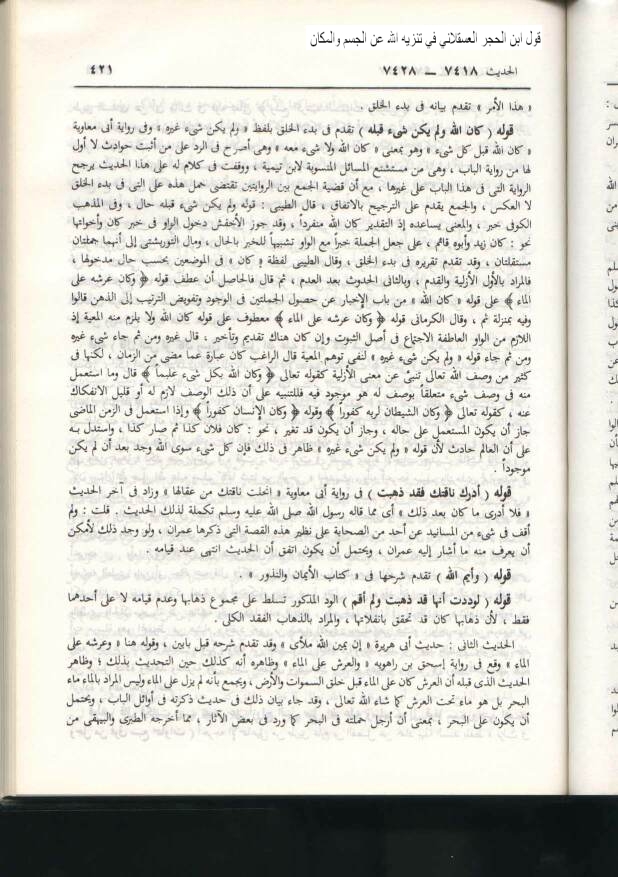 قول ابن الحجر العسقلاني في تنزيه الله عن الجسم والمكان
الحديث ٧٤١٨ – ٧٤٢٨
٤٢١
« هذا الأمر » تقدم بيانه فى بدء الخلق .
قوله ( كان الله ولم يكن شىء قبله ) تقدم فى بدء الخلق بلفظ « ولم يكن شىء غيره » وفى رواية أبى معاوية
« كان الله قبل كل شىء » وهو بمعنى « كان الله ولا شىء معه » وهى أصرح فى الرد على من أثبت حوادث لا أول
لها من رواية الباب ، وهى من مستشنع المسائل المنسوبة لابن تيمية ، ووقفت فى كلام له على هذا الحديث يرجح
الرواية التى فى هذا الباب على غيرها ، مع أن قضية الجمع بين الروايتين تقتضى حمل هذه على التى فى بدء الخلق
لا العكس ، والجمع يقدم على الترجيح بالاتفاق ، قال الطيبى : قوله ولم يكن شىء قبله حال ، وفى المذهب
الكوفى خبر ، والمعنى يساعده إذ التقدير كان الله منفرداً ، وقد جوز الأخفش دخول الواو فى خبر كان وأخواتها
نحو : كان زيد وأبوه قائم ، على جعل الجملة خبراً مع الواو تشبيهاً للخبر بالحال ، ومال التوربشتى إلى أنهما جملتان
مستقلتان ، وقد تقدم تقريره فى بدء الخلق ، وقال الطيبى لفظة « كان » فى الموضعين بحسب حال مدخولها ،
فالمراد بالأول الأزلية والقدم ، وبالثانى الحدوث بعد العدم ، ثم قال فالحاصل أن عطف قوله ﴿ وكان عرشه على
الماء ﴾ على قوله « كان الله » من باب الإخبار عن حصول الجملتين فى الوجود وتفويض الترتيب إلى الذهن قالوا
وفيه بمنزلة ثم ، وقال الكرمانى قوله ﴿ وكان عرشه على الماء ﴾ معطوف على قوله كان الله ولا يلزم منه المعية إذ
اللازم من الواو العاطفة الاجتماع فى أصل الثبوت وإن كان هناك تقديم وتأخير ، قال غيره ومن ثم جاء شىء غيره
ومن ثم جاء قوله « ولم يكن شىء غيره » لنفى توهم المعية قال الراغب كان عبارة عما مضى من الزمان ، لكنها فى
كثير من وصف الله تعالى تنبىء عن معنى الأزلية كقوله تعالى ﴿ وكان الله بكل شىء عليماً ﴾ قال وما استعمل
منه فى وصف شىء متعلقاً بوصف له هو موجود فيه فللتنبيه على أن ذلك الوصف لازم له أو قليل الانفكاك
عنه ، كقوله تعالى ﴿ وكان الشيطان لربه كفوراً ﴾ وقوله ﴿ وكان الإنسان كفوراً ﴾ وإذا استعمل فى الزمن الماضى
جاز أن يكون المستعمل على حاله ، وجاز أن يكون قد تغير ، نحو : كان فلان كذا ثم صار كذا ، واستدل به
على أن العالم حادث لأن قوله « ولم يكن شىء غيره » ظاهر فى ذلك فإن كل شىء سوى الله وجد بعد أن لم يكن
موجوداً .
قوله ( أدرك ناقتك فقد ذهبت ) فى رواية أبى معاوية « انحلت ناقتك من عقالها » وزاد فى آخر الحديث
« فلا أدرى ما كان بعد ذلك » أى مما قاله رسول الله صلى الله عليه وسلم تكملة لذلك الحديث . قلت : ولم
أقف فى شىء من المسانيد عن أحد من الصحابة على نظير هذه القصة التى ذكرها عمران ، ولو وجد ذلك لأمكن
أن يعرف منه ما أشار إليه عمران ، ويحتمل أن يكون اتفق أن الحديث انتهى عند قيامه .
قوله ( وأيم الله ) تقدم شرحها فى « كتاب الأيمان والنذور » .
قوله ( لوددت أنها قد ذهبت ولم أقم ) الود المذكور تسلط على مجموع ذهابها وعدم قيامه لا على أحدهما
فقط ، لأن ذهابها كان قد تحقق بانفلاتها ، والمراد بالذهاب الفقد الكلى .
الحديث الثانى : حديث أبى هريرة « إن يمين الله ملأى » وقد تقدم شرحه قبل بابين ، وقوله هنا « وعرشه على
الماء » وقع فى رواية إسحق بن راهويه « والعرش على الماء » وظاهره أنه كذلك حين التحديث بذلك ؛ وظاهر
الحديث الذى قبله أن العرش كان على الماء قبل خلق السموات والأرض ، ويجمع بأنه لم يزل على الماء وليس المراد بالماء ماء
البحر بل هو ماء تحت العرش كما شاء الله تعالى ، وقد جاء بيان ذلك فى حديث ذكرته فى أوائل الباب ، ويحتمل
أن يكون على البحر ، بمعنى أن أرجل حملته فى البحر كما ورد فى بعض الآثار ، مما أخرجه الطبرى والبيهقى من